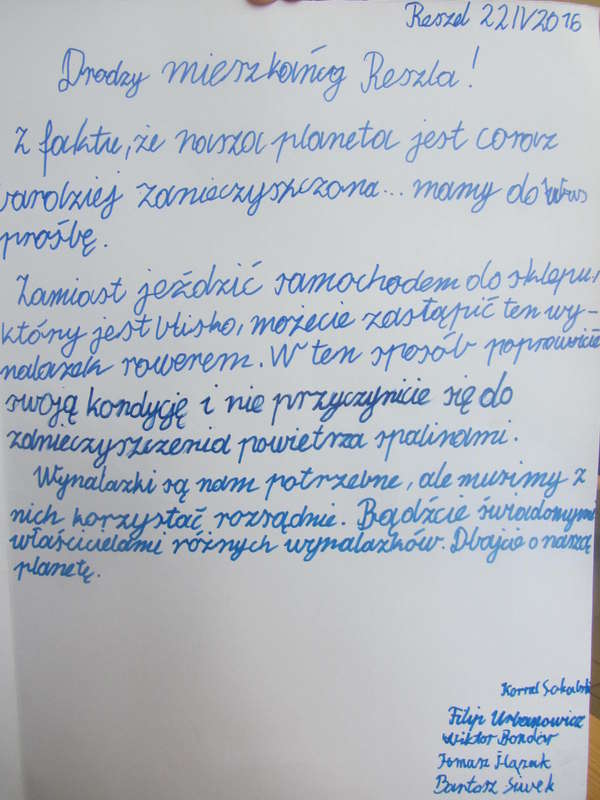 Reszel 22 IV 2016
Drodzy mieszkańcy Reszla!
Z faktu, że nasza planeta jest coraz
bardziej zanieczyszczona... mamy do was
prośbę.
Zamiast jeździć samochodem do sklepu,
który jest blisko, możecie zastąpić ten wy-
nalazek rowerem. W ten sposób poprawicie
swoją kondycję i nie przyczynicie się do
zanieczyszczenia powietrza spalinami.
Wynalazki są nam potrzebne, ale musimy z
nich korzystać rozsądnie. Bądźcie świadomymi
właścicielami różnych wynalazków. Dbajcie o naszą
planetę.
Kornel Sokalski
Filip Urbanowicz
Wiktor Bondar
Tomasz Ślązak
Bartosz Siwek